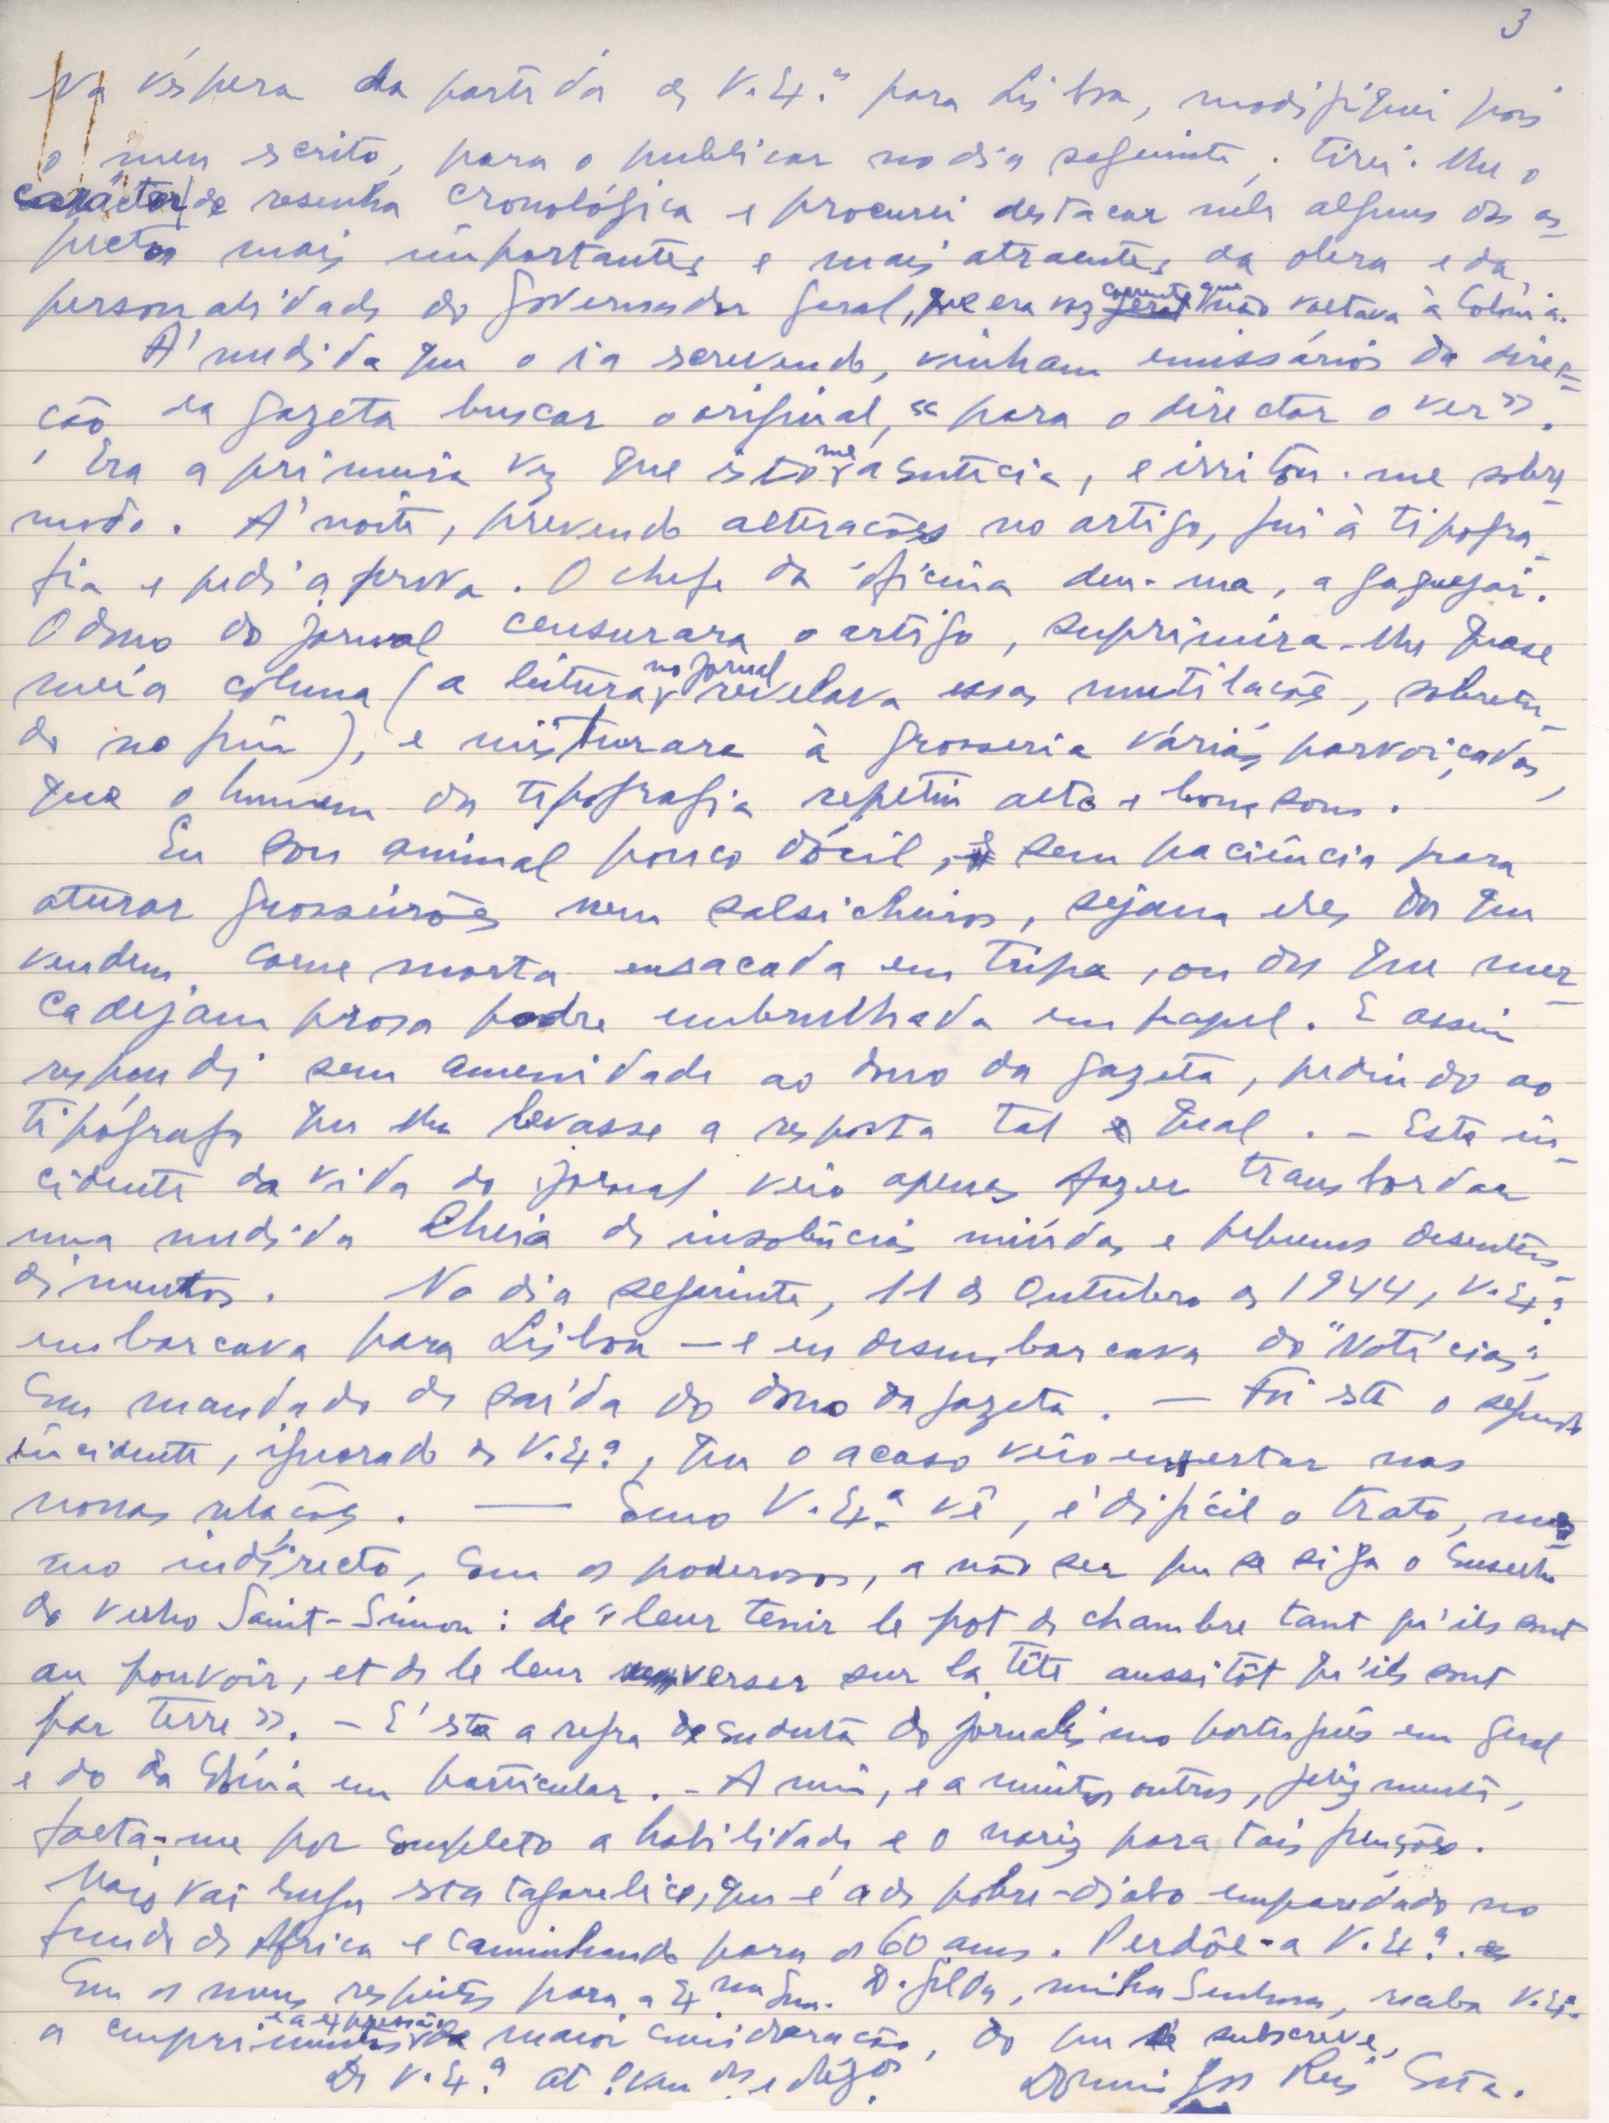 3
Na véspera da partida de V. Ex.ª para Lisboa, modifiquei pois
o meu escrito, para o publicar no dia seguinte; tirei-lhe o
carácter de resenha cronológica e procurei destacar nele alguns dos as-
pectos mais importantes e mais atraentes da obra e da
personalidade do Governador Geral, que era voz corrente que não voltava à Colónia.
À medida que o ia escrevendo, vinham emissários da direc-
ção da gazeta buscar o original, «para o director o ver».
Era a primeira vez que isto me acontecia, e irritou-me sobre-
modo. À noite, prevendo alterações no artigo, fui à tipogra-
fia e pedi a prova. O chefe da oficina deu-ma, a gaguejar.
O dono do jornal censurara o artigo, suprimira-lhe quase
meia coluna (a leitura no jornal revelava essas mutilações, sobretu-
do no fim), e misturara à grosseria várias parvoiçadas,
que o homem da tipografia repetiu alto e bom som.
Eu sou animal pouco dócil, e sem paciência para
aturar grosseirões nem salsicheiros, sejam eles dos que
vendem carne morta ensacada em tripa, ou dos que mer-
cadejam prosa podre embrulhada em papel. E assim
respondi sem amenidade ao dono da gazeta, pedindo ao
tipógrafo que lhe levasse a resposta tal e qual. - Este in-
cidente da vida do jornal veio apenas fazer transbordar
uma medida cheia de insolências miúdas e pequenos desenten-
dimentos. No dia seguinte, 11 de Outubro de 1944, V. Ex.ª
embarcava para Lisboa — e eu desembarcava do "Notícias",
com mandado de saída do dono da gazeta. — Foi este o segundo
incidente, ignorado de V. Ex.ª, que o acaso veio enxertar nas
nossas relações. — Como V. Ex.ª vê, é difícil o trato, mes-
mo indirecto, com os poderosos, a não ser que se siga o conselho
do velho Saint-Simon: de «leur tenir le pot de chambre tant qu'ils sont
au pouvoir, et de le leur verser sur la tête aussitôt qu'ils sont
par terre». - É esta a regra de conduta do jornalismo português em geral
e do da Colónia em particular. - A mim, e a muitos outros, felizmente,
falta-me por completo a habilidade e o nariz para tais funções.
vai longa esta tagarelice, que é a de pobre-diabo emparedado no
fundo de África e caminhando para os 60 anos. Perdôe-a V. Ex.ª.
Com os meus respeitos para a Ex.ma Snra. D. Gilda, minha Senhora, receba V. Ex.ª
os cumprimentos e a expressão da maior consideração, do que se subscreve,
De V. Ex.ª at.º ven.dor e obgdo.
Domingos Reis Costa.